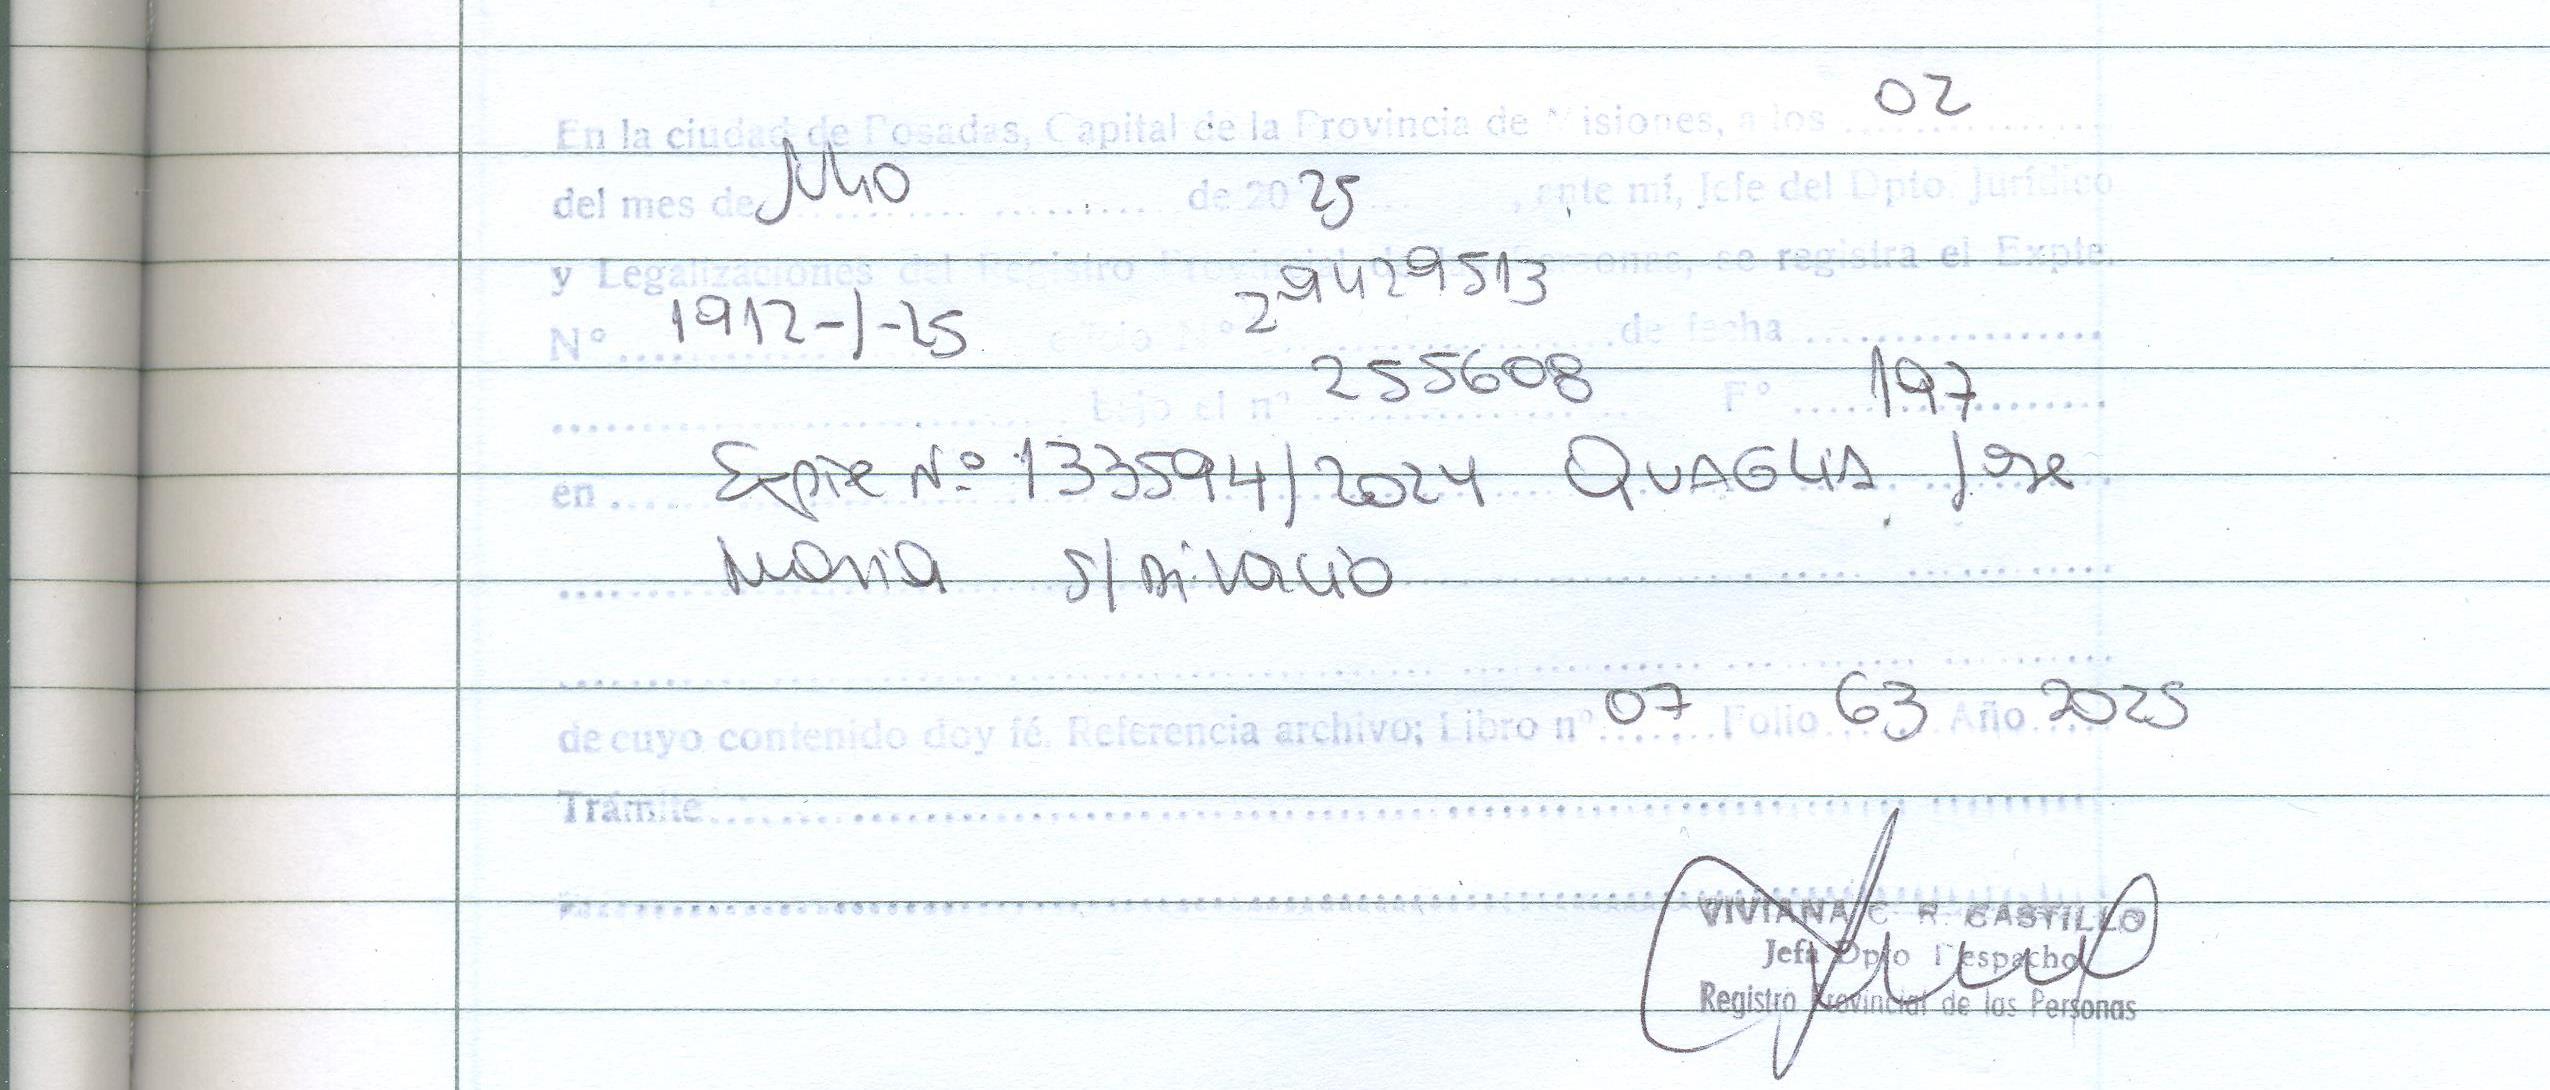 En la ciudad de Posadas, Capital de la Provincia de Misiones, a los 02
del mes de Julio de 2025, ante mí, Jefe del Dpto. Jurídico
y Legalizaciones del Registro Provincial de las Personas, se registra el Expte.
Nº 1912-J-25 oficio Nº 29429513 de fecha
bajo el nº 255608 Fº 197
en Expte Nº 133594/2024 QUAGLIA Jose
Maria S/Divorcio
de cuyo contenido doy fé. Referencia archivo; Libro nº 07 Folio 63 Año 2025
Trámite
VIVIANA C. R. CASTILLO
Jefa Dpto Despacho
Registro Provincial de las Personas